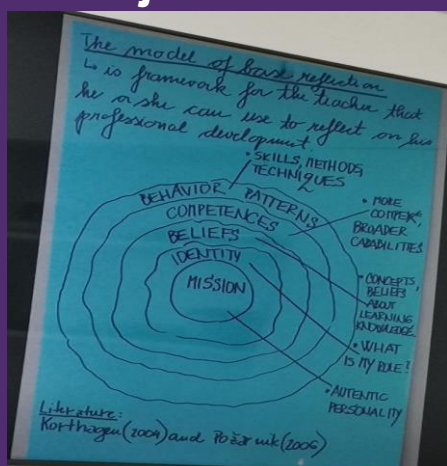 The model of base reflection
↳ is framework for the teacher that
he or she can use to reflect on his
professional development.
• SKILLS, METHODS,
TECHNIQUES
BEHAVIOR PATTERNS
COMPETENCES
BELIEFS
IDENTITY
MISSION
• MORE
BROADER
CABABILITIES
• CONCEPTS,
BELIEFS
ABOUT
LEARNING
KNOWLEDGE
• WHAT
IS MY ROLE?
• AUTENTIC
PERSONALITY
Literature:
Korthagen (2004) and Požarnik (2006)